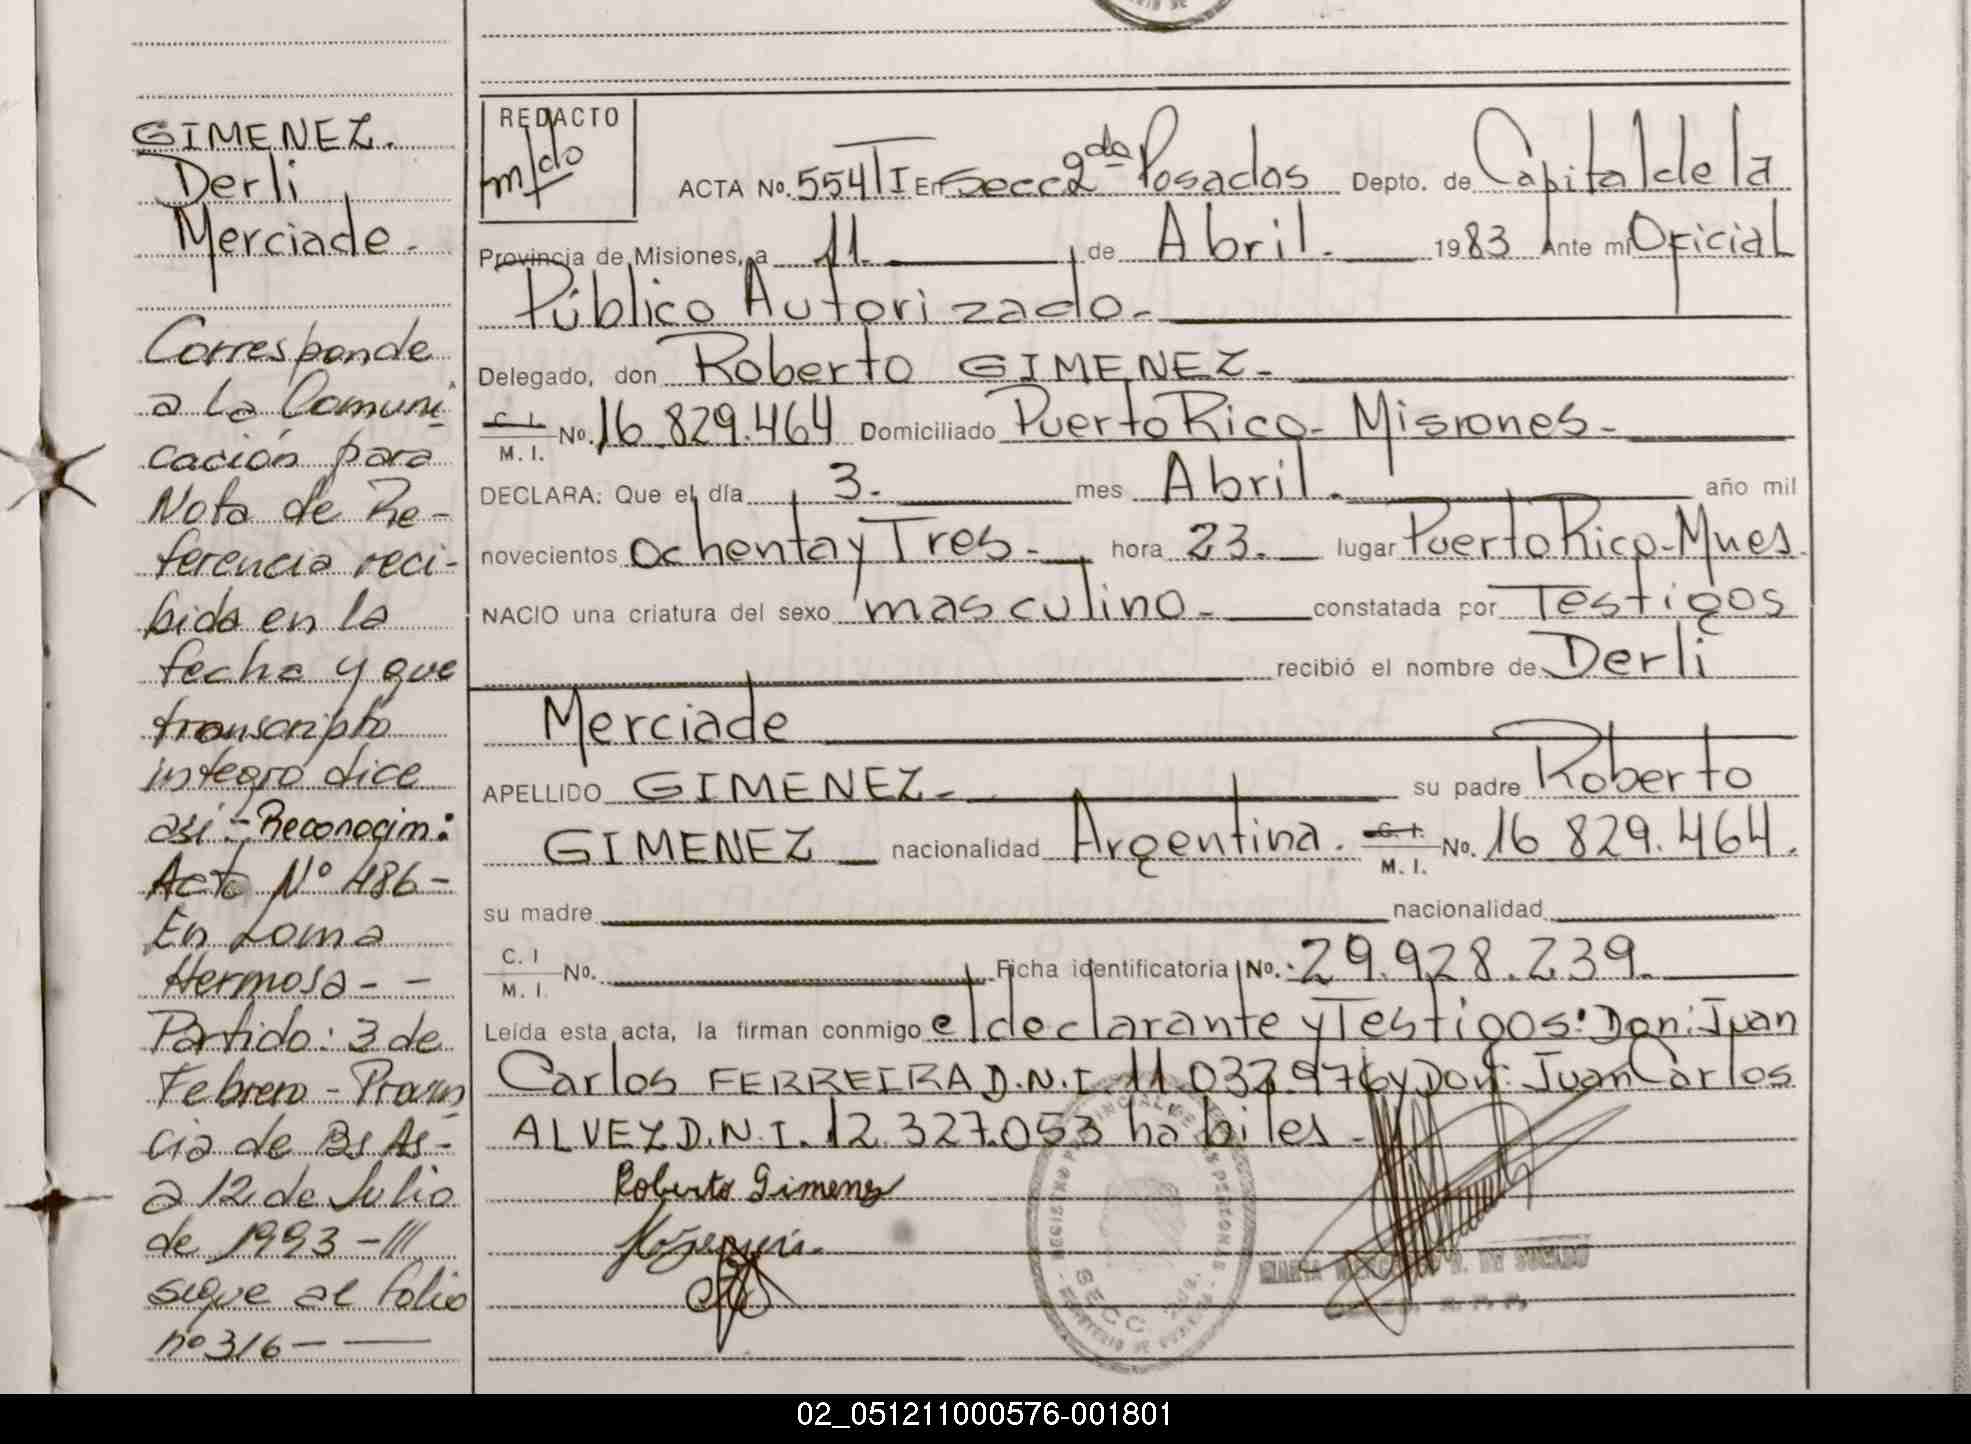 GIMENEZ.
Derli
Merciade.
Corresponde
a la Comuni
cación para
Nota de Re-
ferencia reci-
bida en la
fecha y que
transcripto
integro dice
asi:- Reconocim:
Acta Nº 486-
En Loma
Hermosa - -
Partido: 3 de
Febrero - Provin
cia de Bs As-
a 12 de Julio
de 1993 -///
sigue al folio
nº 316 - ——
REDACTO
ACTA No. 554 TI En Secc 2da Posadas Depto. de Capital de la
Provincia de Misiones, a 11. de Abril. 1983 Ante mi Oficial
Público Autorizado.-
Delegado, don Roberto GIMENEZ-
C. I. M. I. No. 16.829.464 Domiciliado Puerto Rico- Misiones-
DECLARA: Que el día 3. mes Abril. año mil
novecientos ochenta y Tres- hora 23. lugar Puerto Rico-Mnes.
NACIO una criatura del sexo masculino- constatada por Testigos
recibió el nombre de Derli
Merciade
APELLIDO GIMENEZ- su padre Roberto
GIMENEZ nacionalidad Argentina. C. I. M. I. No. 16 829.464.
su madre nacionalidad
C. I M. I. No. Ficha identificatoria No. 29.928.239.
Leída esta acta, la firman conmigo el declarante y Testigos: Don: Juan
Carlos FERREIRA D.N.I 11.032.976 y Don: Juan Carlos
ALVEZ D.N.I. 12.327.053 habiles-
Roberto Gimenez
SECC
02_051211000576-001801